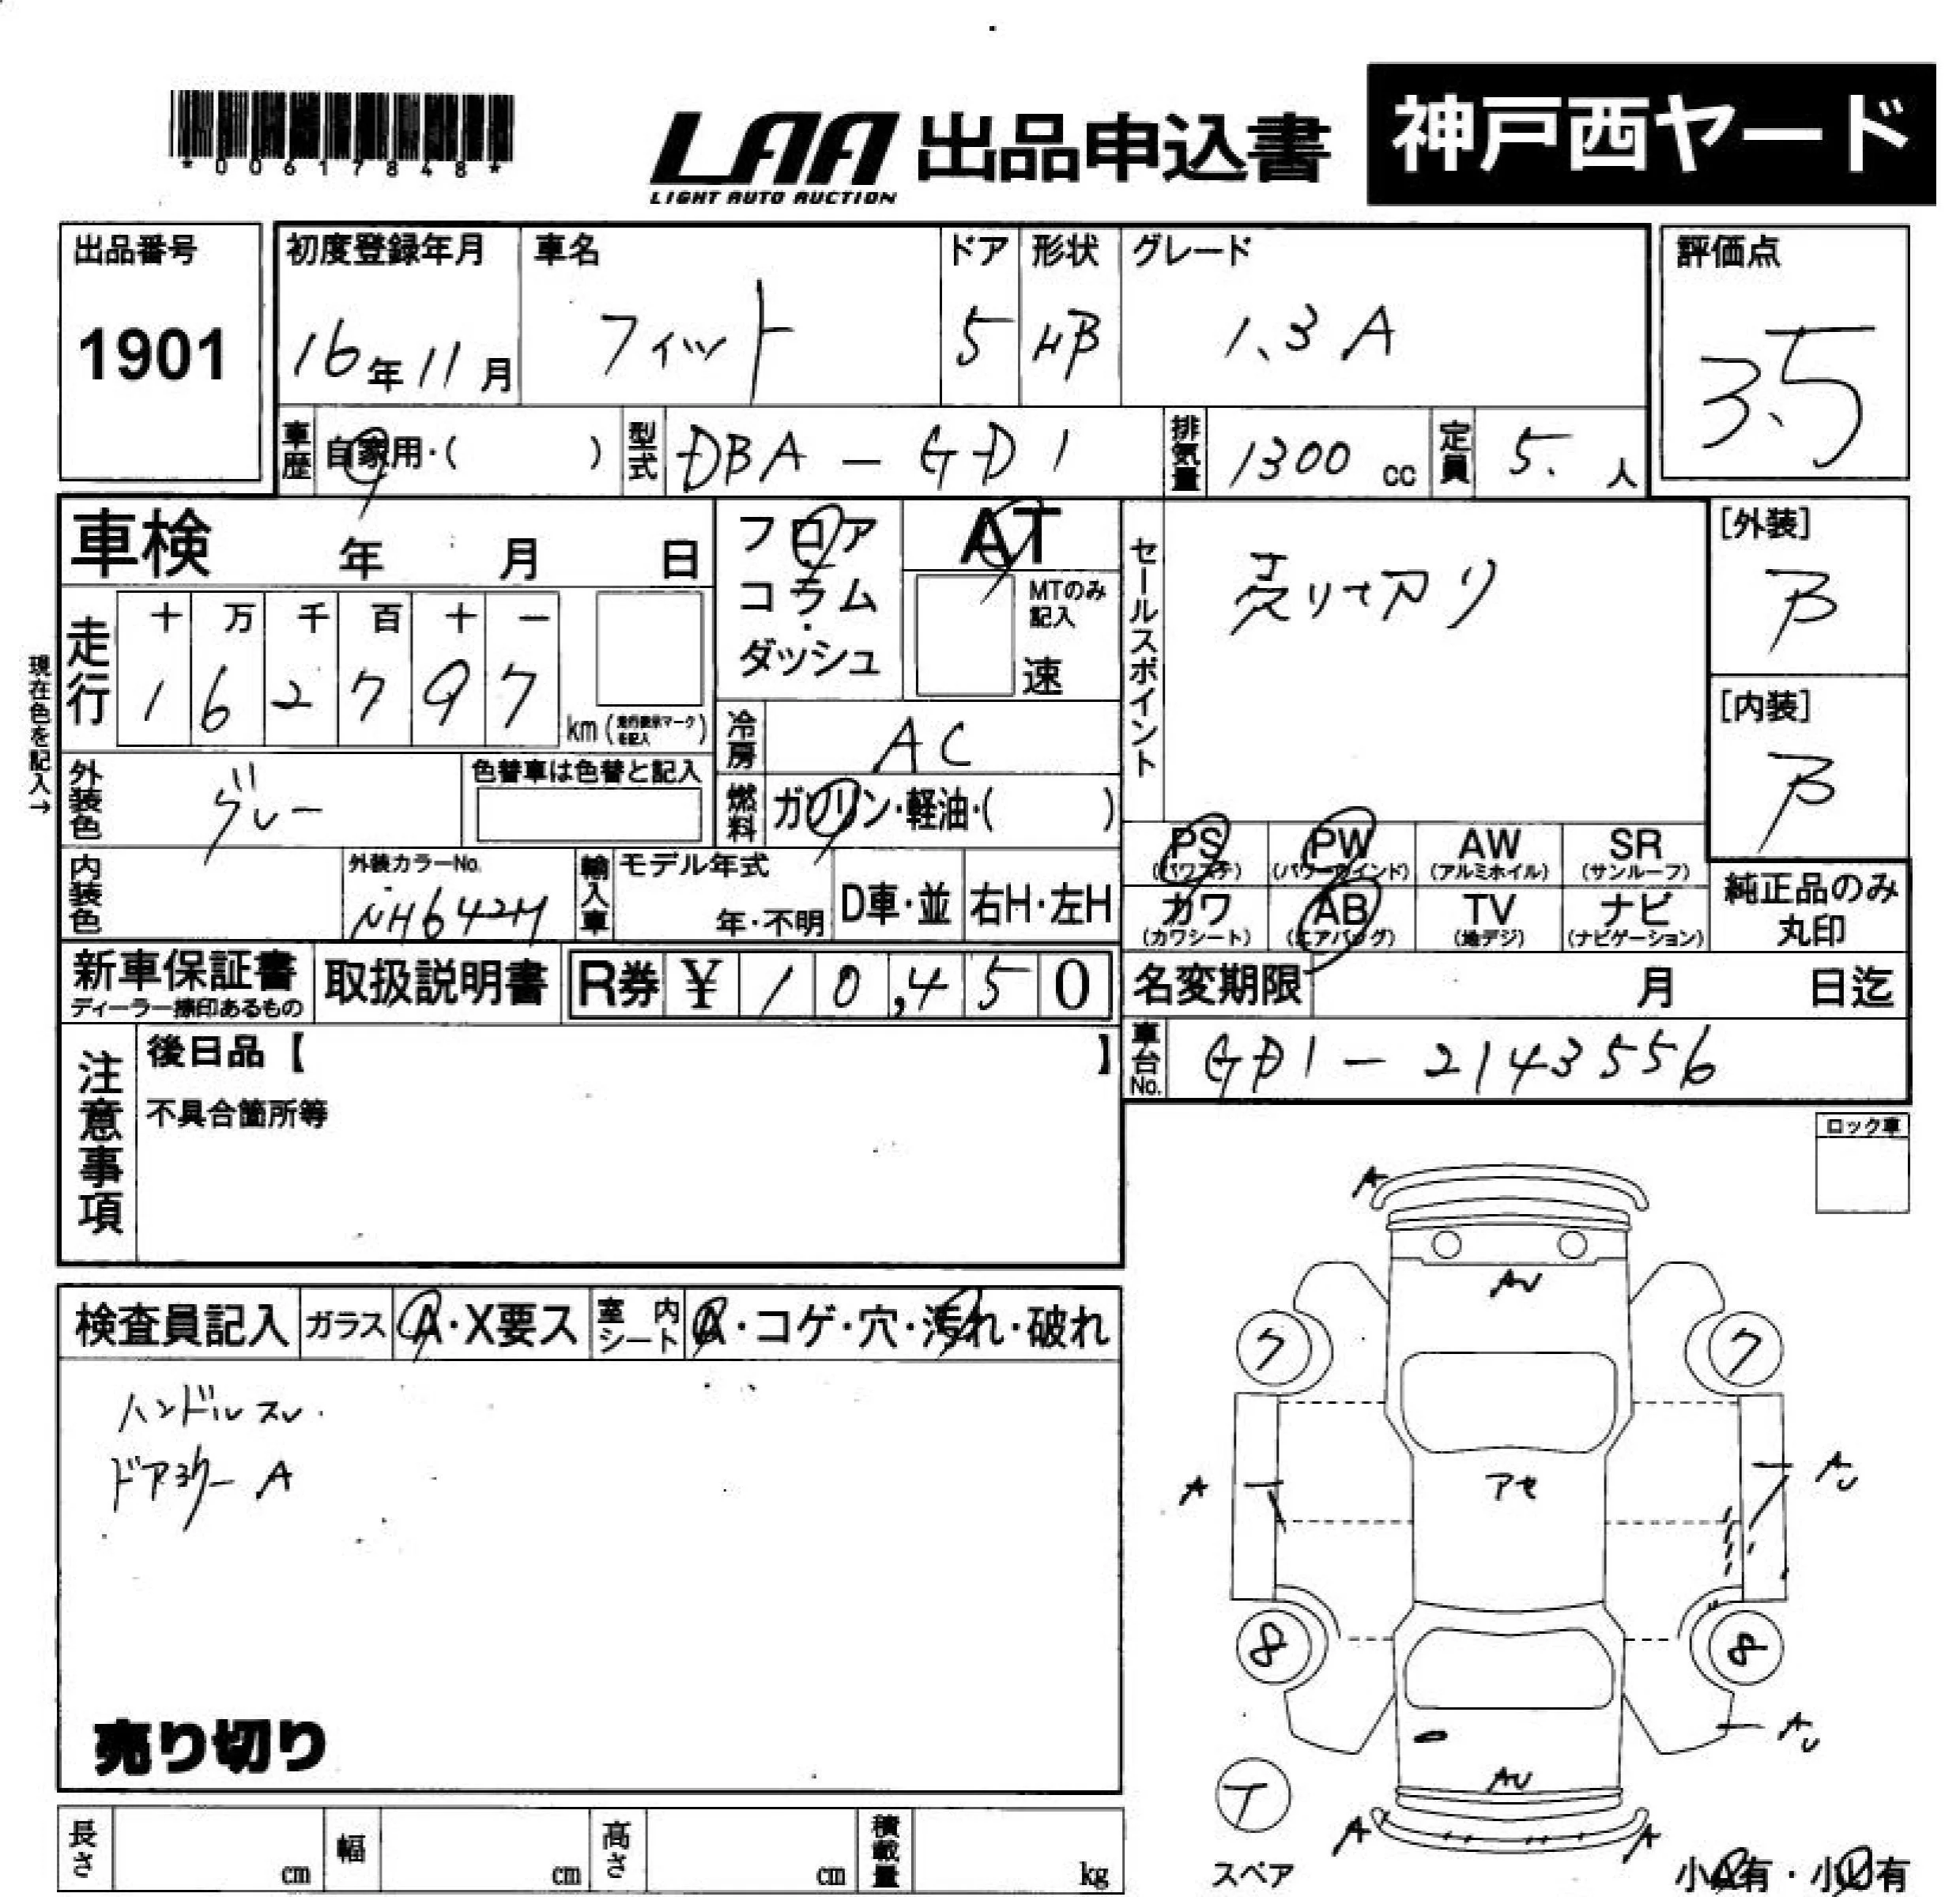 *00617848*
LAA 出品申込書 神戸西ヤード
LIGHT AUTO AUCTION
出品番号
1901
初度登録年月
16年11月
車名
フィット
ドア
5
形状
HB
グレード
1.3A
評価点
3.5
車歴 自家用・( )
型式 DBA-GD1
排気量 1300 cc
定員 5. 人
車検 年 月 日
フロア
コラム
ダッシュ
AT
MTのみ
記入
速
セールスポイント
売り切り
[外装]
B
[内装]
B
現在色を記入→
走行
十 万 千 百 十 一
1 6 2 7 9 7
km (走行表示マークを記入)
冷房 AC
外装色 グレー
色替車は色替と記入
燃料 ガソリン・軽油・( )
内装色
外装カラーNo.
NH642M
輸入車
モデル年式
年・不明
D車・並
右H・左H
PS
(パワステ)
PW
(パワーウインド)
AW
(アルミホイル)
SR
(サンルーフ)
カワ
(カワシート)
AB
(エアバッグ)
TV
(地デジ)
ナビ
(ナビゲーション)
純正品のみ
丸印
新車保証書
ディーラー捺印あるもの
取扱説明書
R券 ¥ 10,450
名変期限 月 日迄
車台No. GD1-2143556
注意事項
後日品【 】
不具合箇所等
ロック車
検査員記入
ガラス A・X要ス
室内シート A・コゲ・穴・汚れ・破れ
ハンドルスレ.
ドアミラーA
売り切り
A
AU
7
7
A
アセ
AU
8
8
AU
AU
T
A
A
スペア
小A有・小U有
長さ cm
幅 cm
高さ cm
積載量 kg